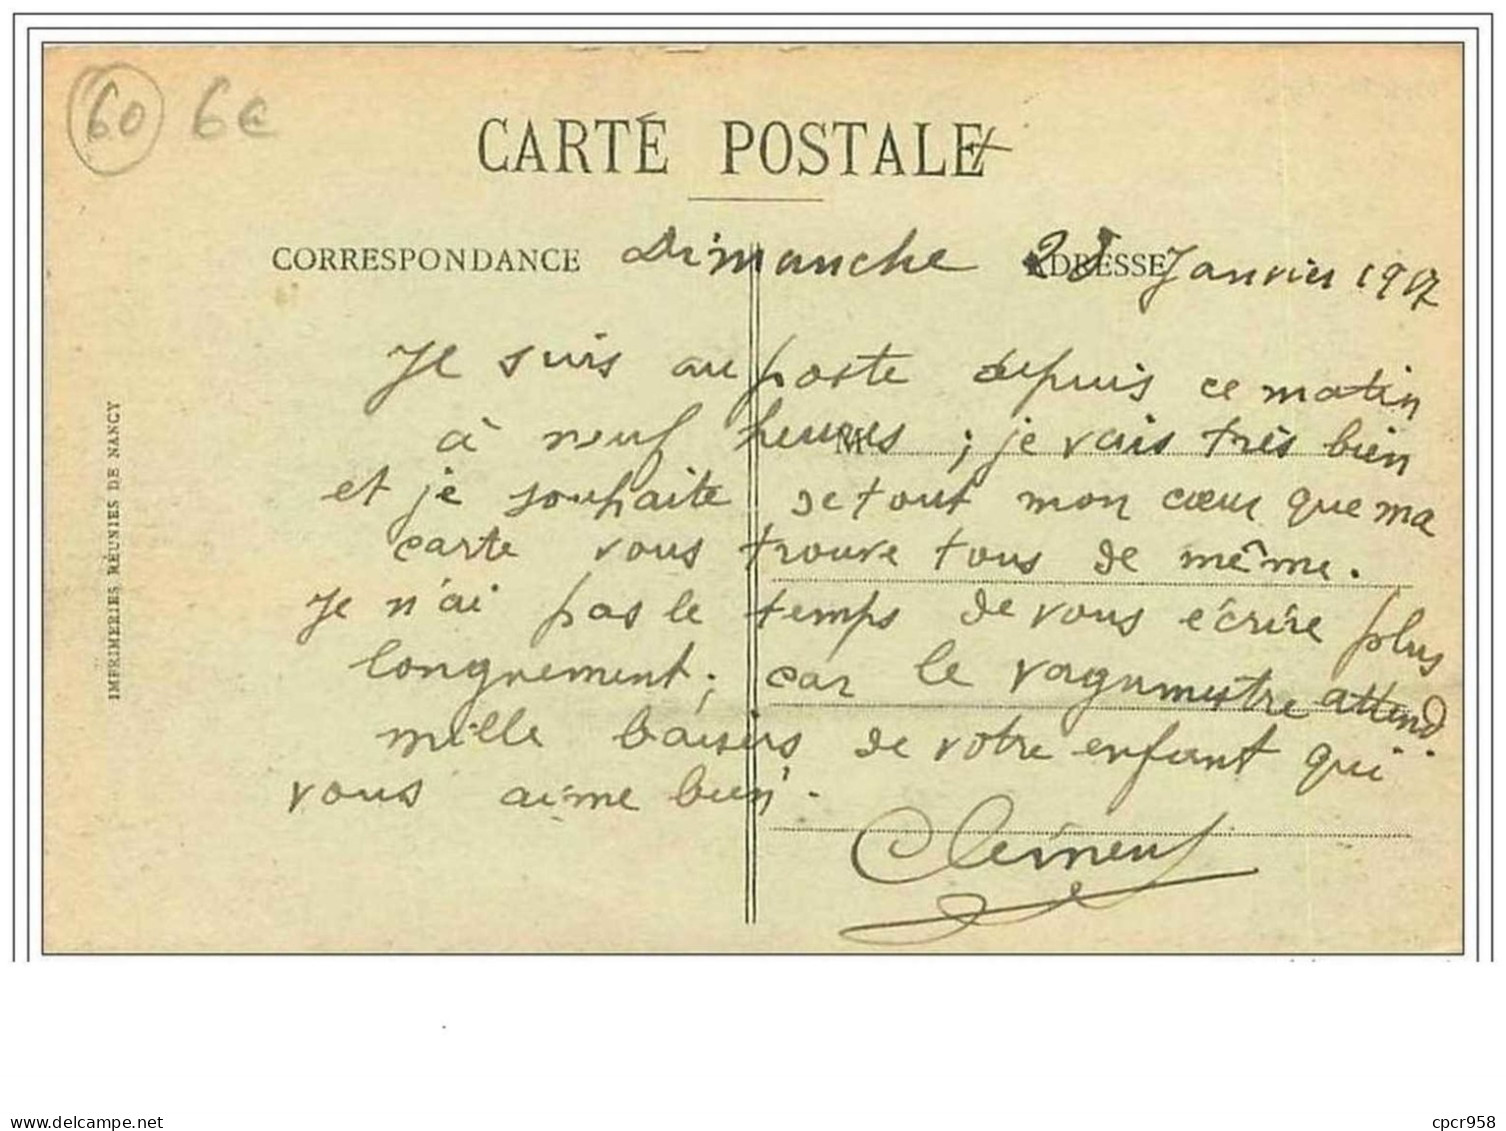 60 6€
CARTE POSTALE
CORRESPONDANCE Dimanche 28 ADRESSE Janvier 1917
Je suis au poste depuis ce matin
à neuf heures ; je vais très bien
M
et je souhaite de tout mon cœur que ma
carte vous trouve tous de même.
Je n'ai pas le temps de vous écrire plus
longuement ; car le vaguemestre attend.
mille baisers de votre enfant qui
vous aime bien.
Clément
IMPRIMERIES RÉUNIES DE NANCY
delcampe.net
cpcr958